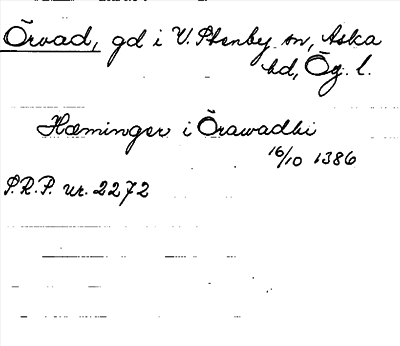 Örvad, gd i V. Stenby sn, Aska
hd, Ög. l.
Hæminger i Örawadhi
16/10 1386
S.R.P. nr. 2272